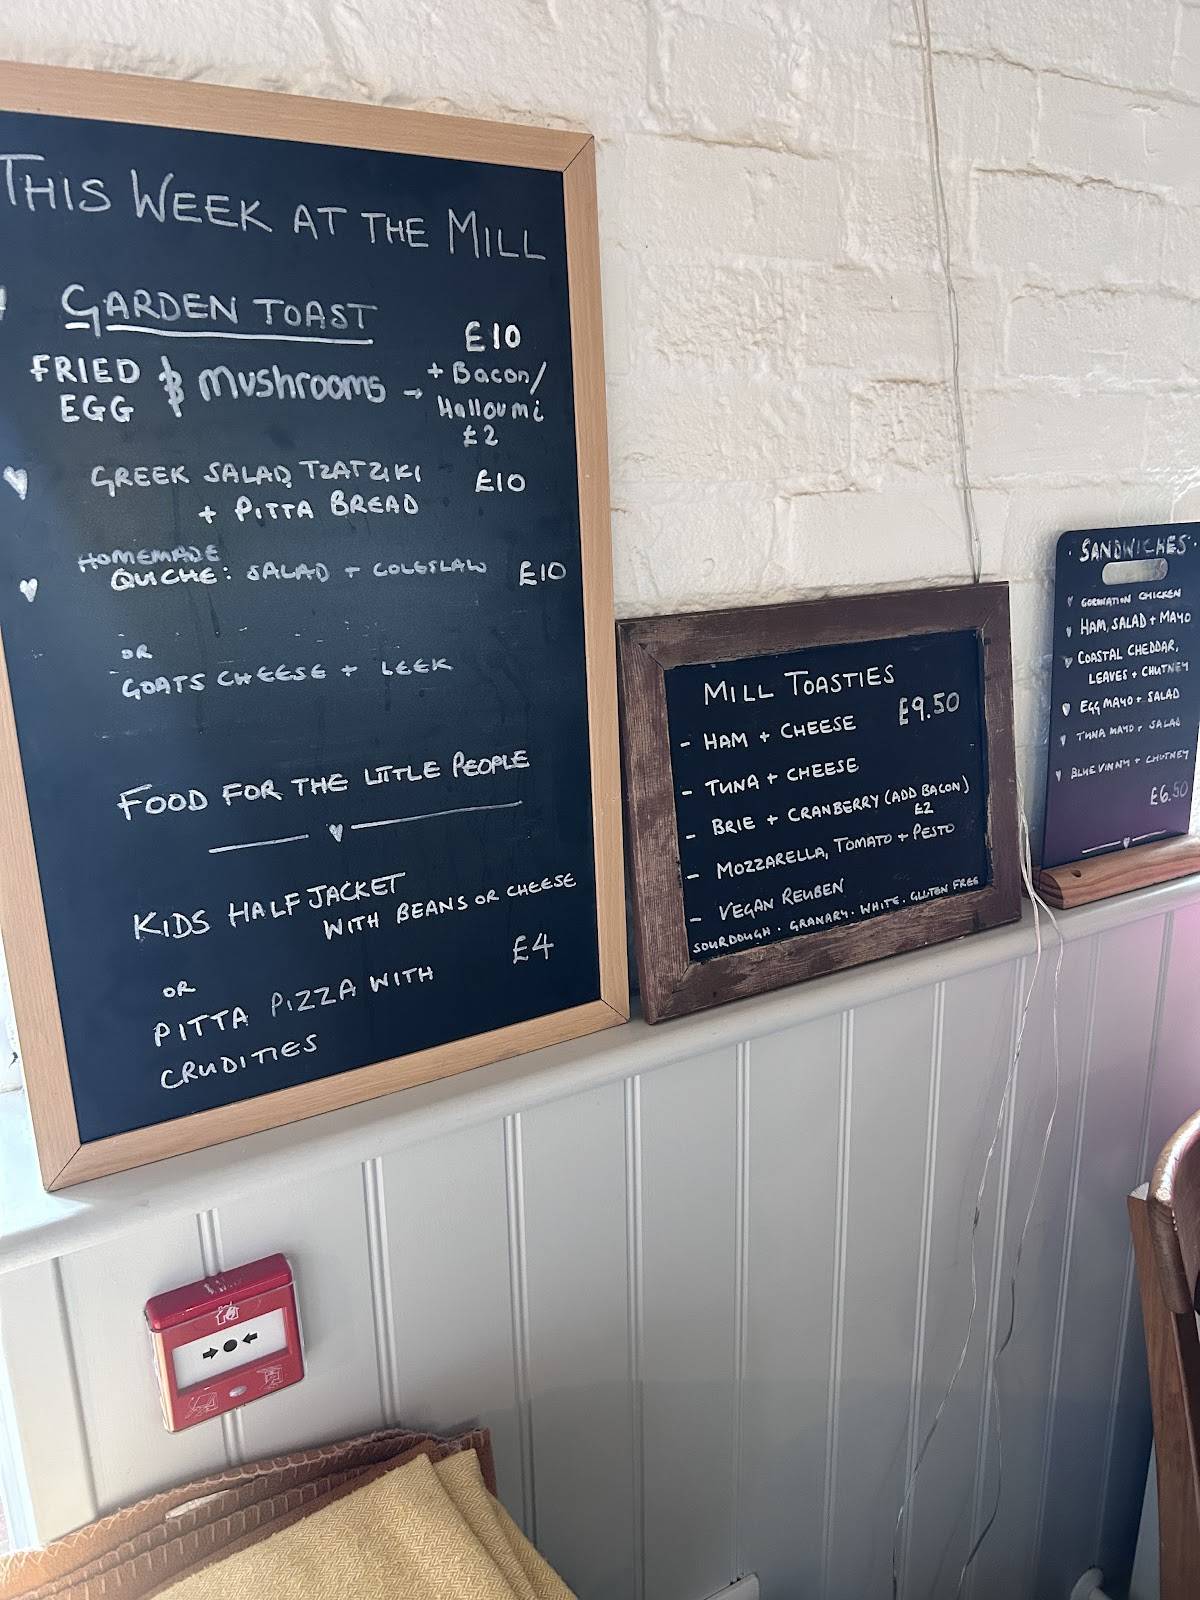 THIS WEEK AT THE MILL
GARDEN TOAST
£10
FRIED & mushrooms → + Bacon/
EGG Halloumi
£2
GREEK SALAD, TZATZIKI £10
+ PITTA BREAD
HOMEMADE
QUICHE: SALAD + COLESLAW £10
OR
GOATS CHEESE + LEEK
FOOD FOR THE LITTLE PEOPLE
KIDS HALF JACKET
WITH BEANS OR CHEESE
£4
OR
PITTA PIZZA WITH
CRUDITIES
MILL TOASTIES
£9.50
- HAM + CHEESE
- TUNA + CHEESE
- BRIE + CRANBERRY (ADD BACON)
£2
- MOZZARELLA, TOMATO + PESTO
- VEGAN REUBEN
SOURDOUGH · GRANARY · WHITE · GLUTEN FREE
· SANDWICHES ·
CORONATION CHICKEN
HAM, SALAD + MAYO
COASTAL CHEDDAR,
LEAVES + CHUTNEY
EGG MAYO + SALAD
TUNA MAYO + SALAD
BLUE VINNY + CHUTNEY
£6.50